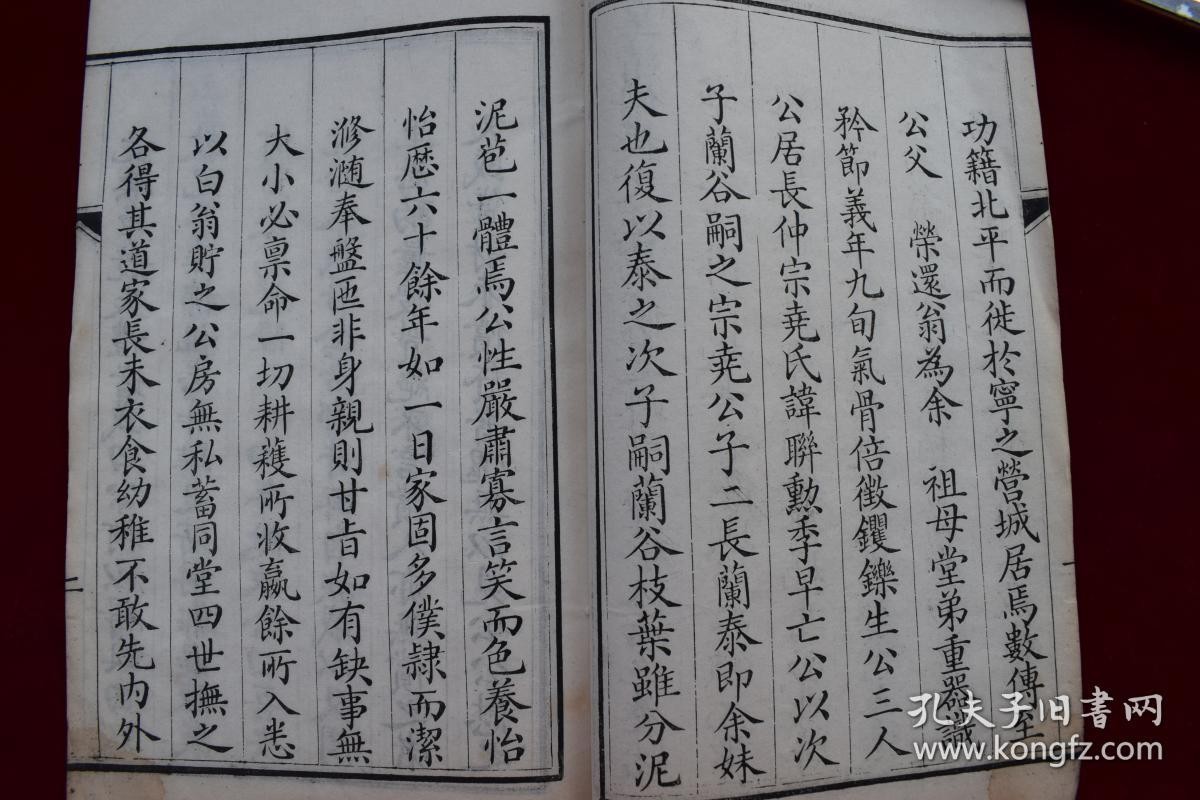 功籍北平而徙於寧之營城居焉數傳至
公父　榮還翁為余　祖母堂弟重器識
矜節義年九旬氣骨倍徵钁鑠生公三人
公居長仲宗堯氏諱聯勳季早亡公以次
子蘭谷嗣之宗堯公子二長蘭泰即余妹
夫也復以泰之次子嗣蘭谷枝葉雖分泥
泥苞一體焉公性嚴肅寡言笑而色養怡
怡歷六十餘年如一日家固多僕隸而潔
滫瀡奉盤匜非身親則甘旨如有缺事無
大小必禀命一切耕穫所收贏餘所入悉
以白翁貯之公房無私蓄同堂四世撫之
各得其道家長未衣食幼稚不敢先内外
一
二
孔夫子旧书网
www.kongfz.com